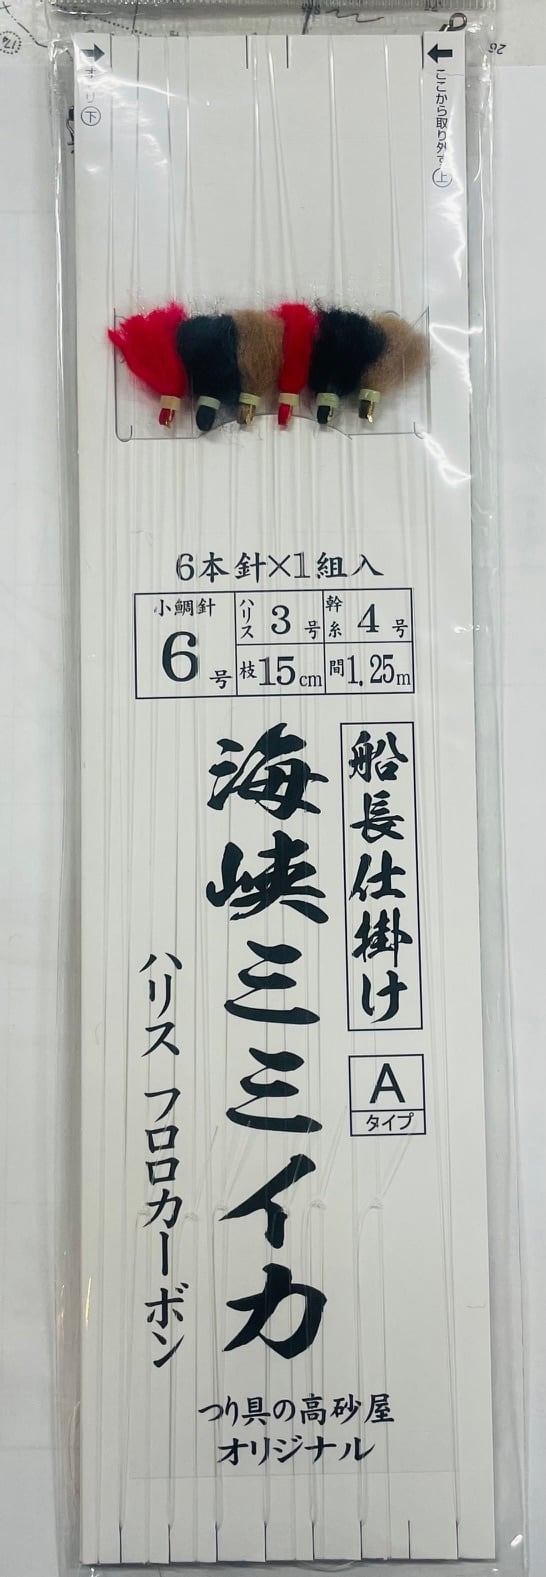 ここから取り外す上
オモリ下
6本針×1組入
小鯛針 6号
ハリス 3号
幹糸 4号
枝15cm
間1.25m
船長仕掛け
Aタイプ
海峡ミミイカ
ハリス フロロカーボン
つり具の高砂屋
オリジナル